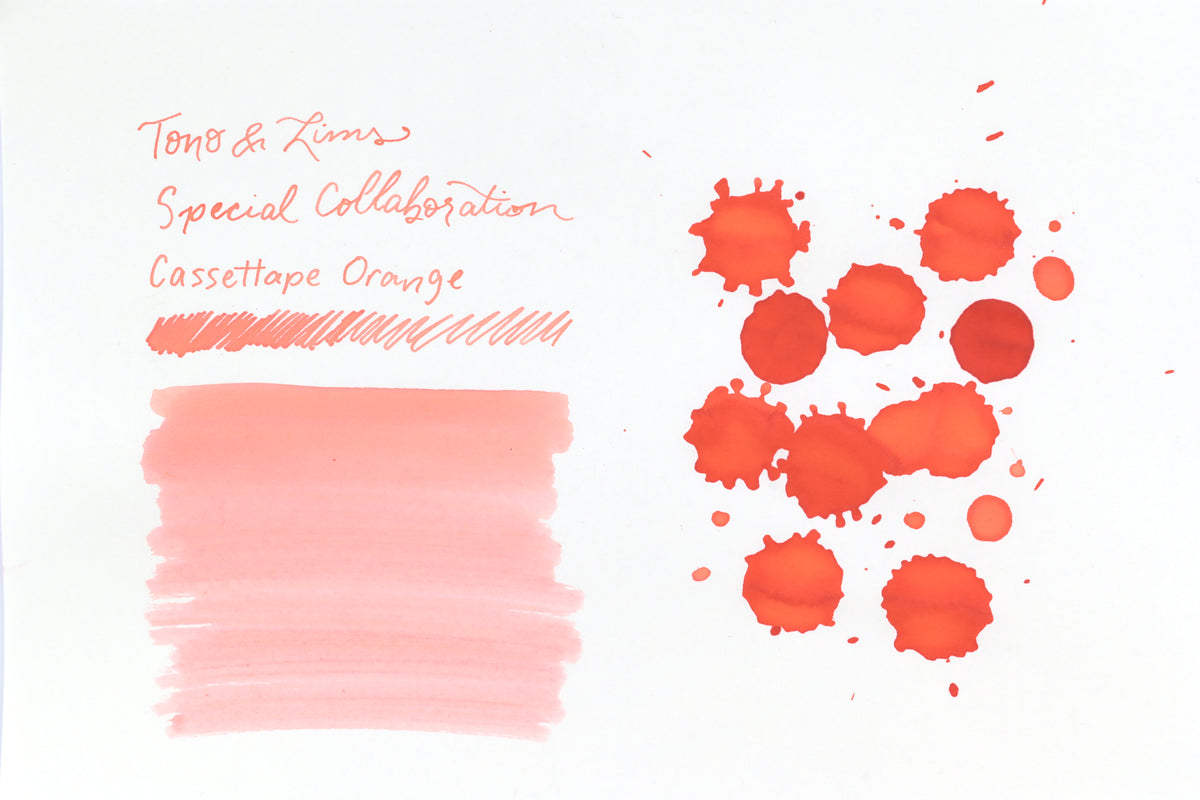 Tono & Lims
Special Collaboration
Cassettape Orange